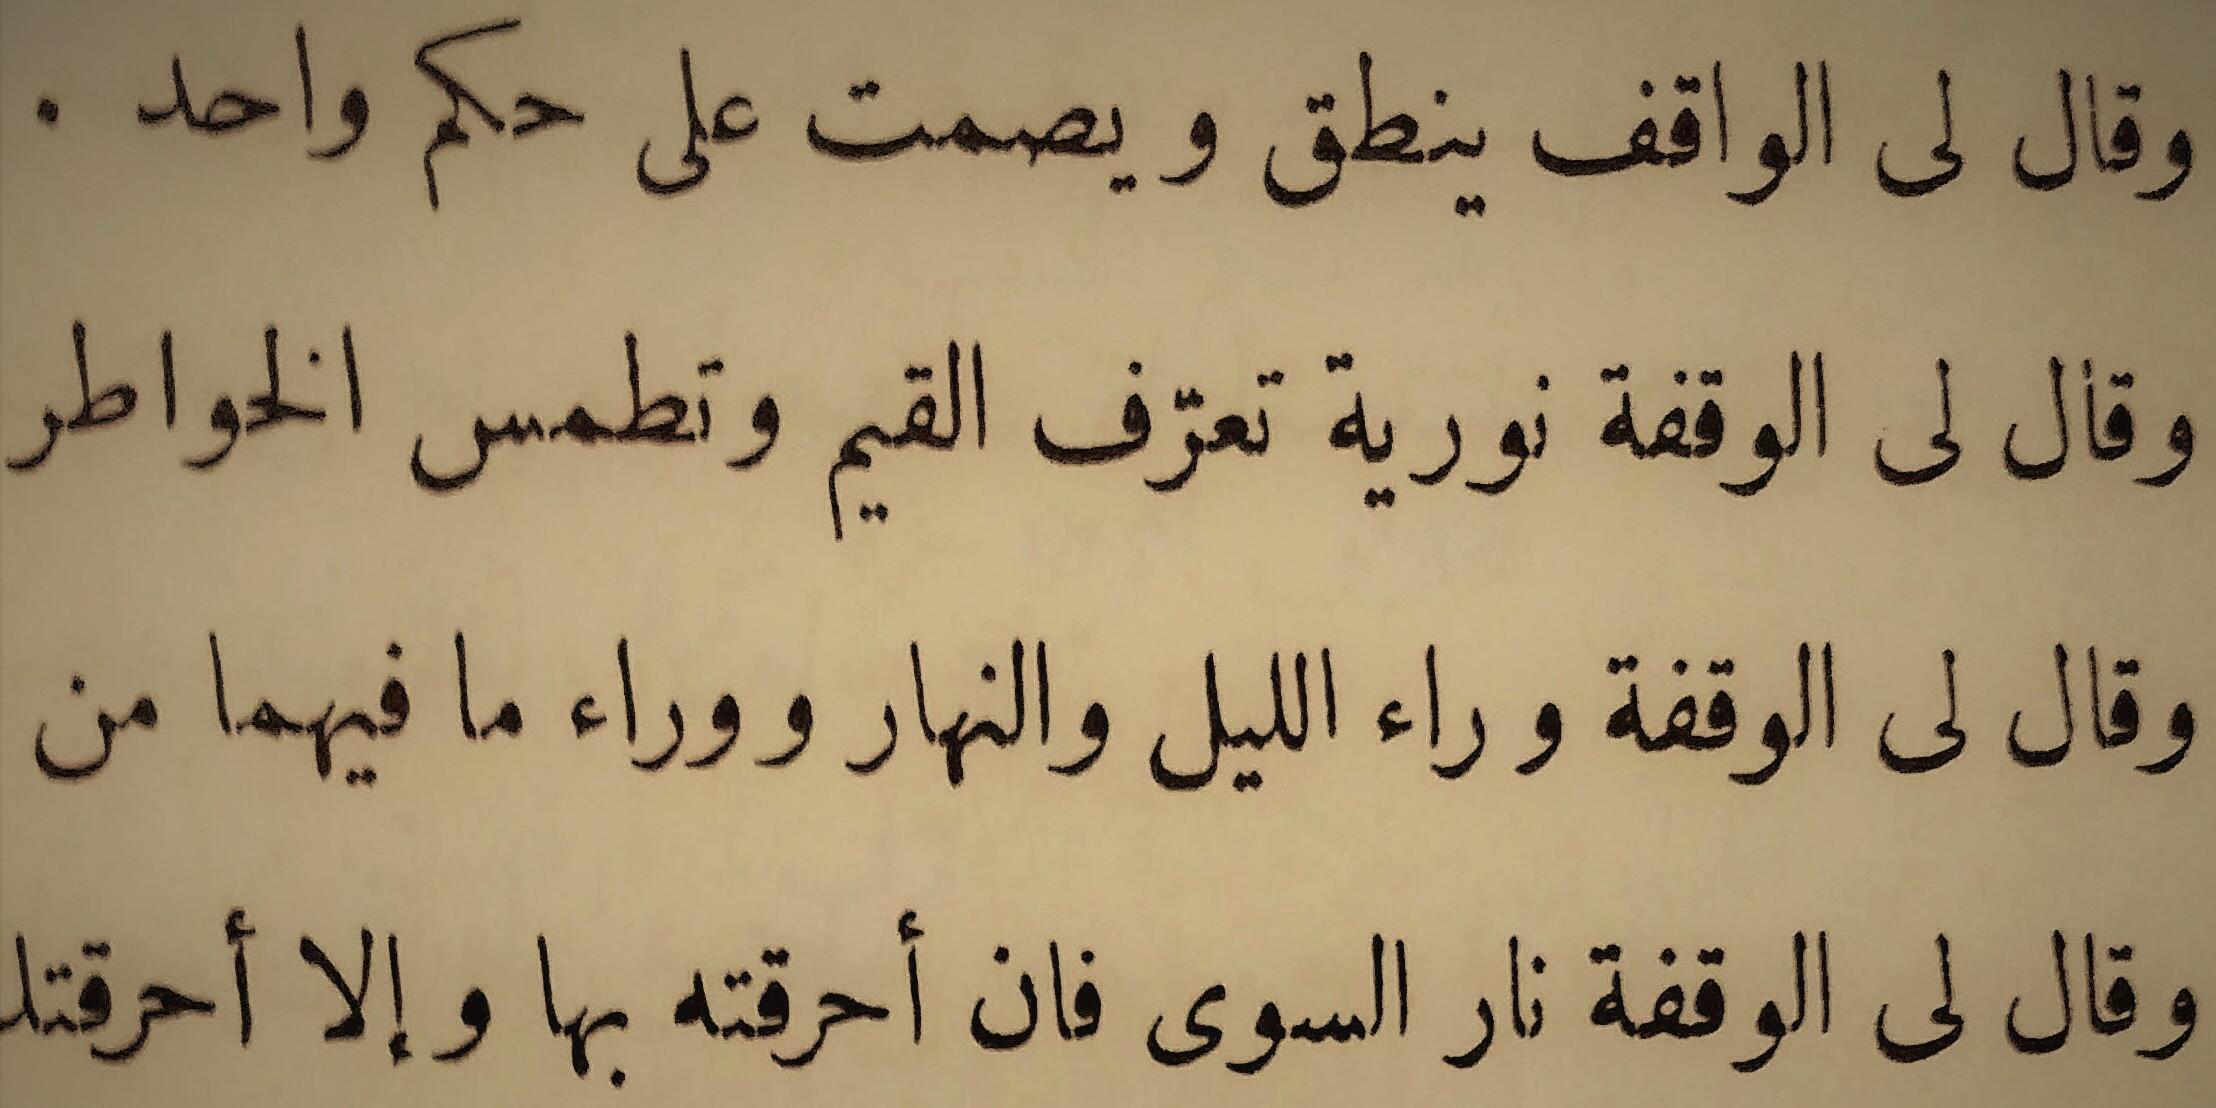 وقال لى الواقف ينطق ويصمت على حكم واحد .
وقال لى الوقفة نورية تعرّف القيم وتطمس الخواطر
وقال لى الوقفة وراء الليل والنهار ووراء ما فيهما من
وقال لى الوقفة نار السوى فان أحرقته بها وإلا